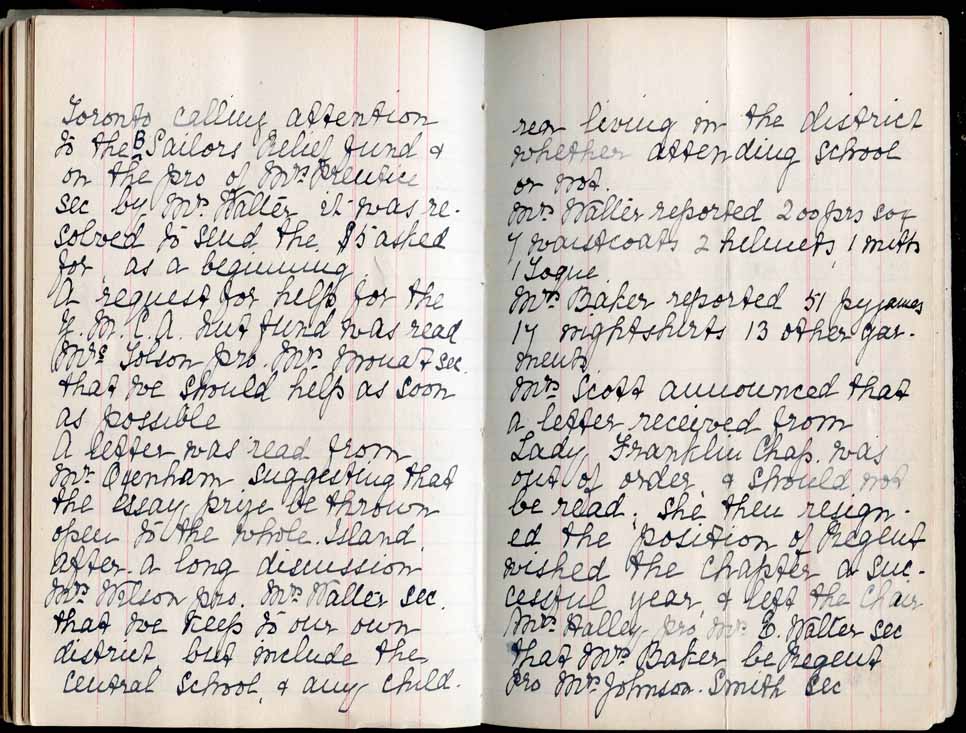 Toronto calling attention
to the B Sailors Relief fund &
on the pro of Mrs Prentice
sec by Mrs. Walter it was re-
solved to send the $5 asked
for, as a beginning.
A request for help for the
Y. M. C. A. Hut fund was read
Mrs Tolson pro. Mrs Mouat sec.
that we should help as soon
as possible
A letter was read from
Mr Oxenham suggesting that
the essay prize be thrown
open to the whole Island.
after a long discussion
Mrs Wilson pro. Mrs Walter sec.
that we keep to our own
district but include the
central school, & any child-
ren living in the district
whether attending school
or not.
Mrs Walter reported 200 prs sox
7 waistcoats 2 helmets, 1 mitts
1 Toque.
Mrs Baker reported 51 pyjames
17 nightshirts 13 other gar-
ments.
Mrs Scott announced that
a letter received from
Lady Franklin Chap. was
out of order & should not
be read; she then resign-
ed the position of Regent
wished the chapter a suc-
cessful year, & left the Chair
Mrs Halley pro Mrs E. Walter sec
that Mrs Baker be Regent
pro Mrs Johnson. Smith sec